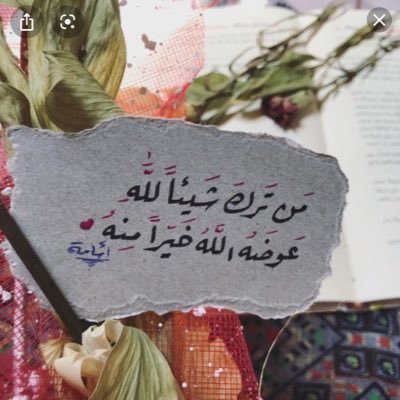 مَن تَركَ شَيئاً للَّهِ
عَوضَهُ اللَّهُ خَيَراً مِنِهُ